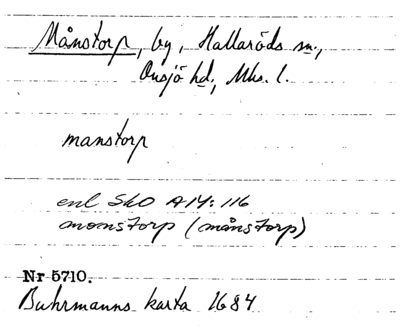 Månstorp, by, Hallaröds sn.,
Onsjö hd., Mhs. l.
manstorp
enl SkO A14: 116
momstorp (månstorp)
Nr 5710.
Buhrmanns karta 1684